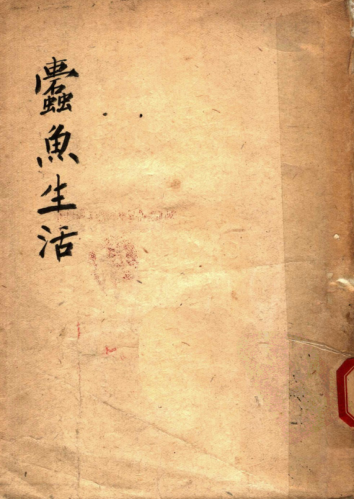 蠹魚生活